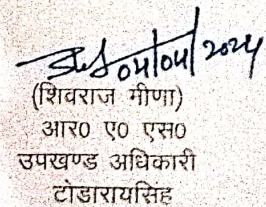 04/04/2024
(शिवराज मीणा)
आर० ए० एस०
उपखण्ड अधिकारी
टोडारायसिंह